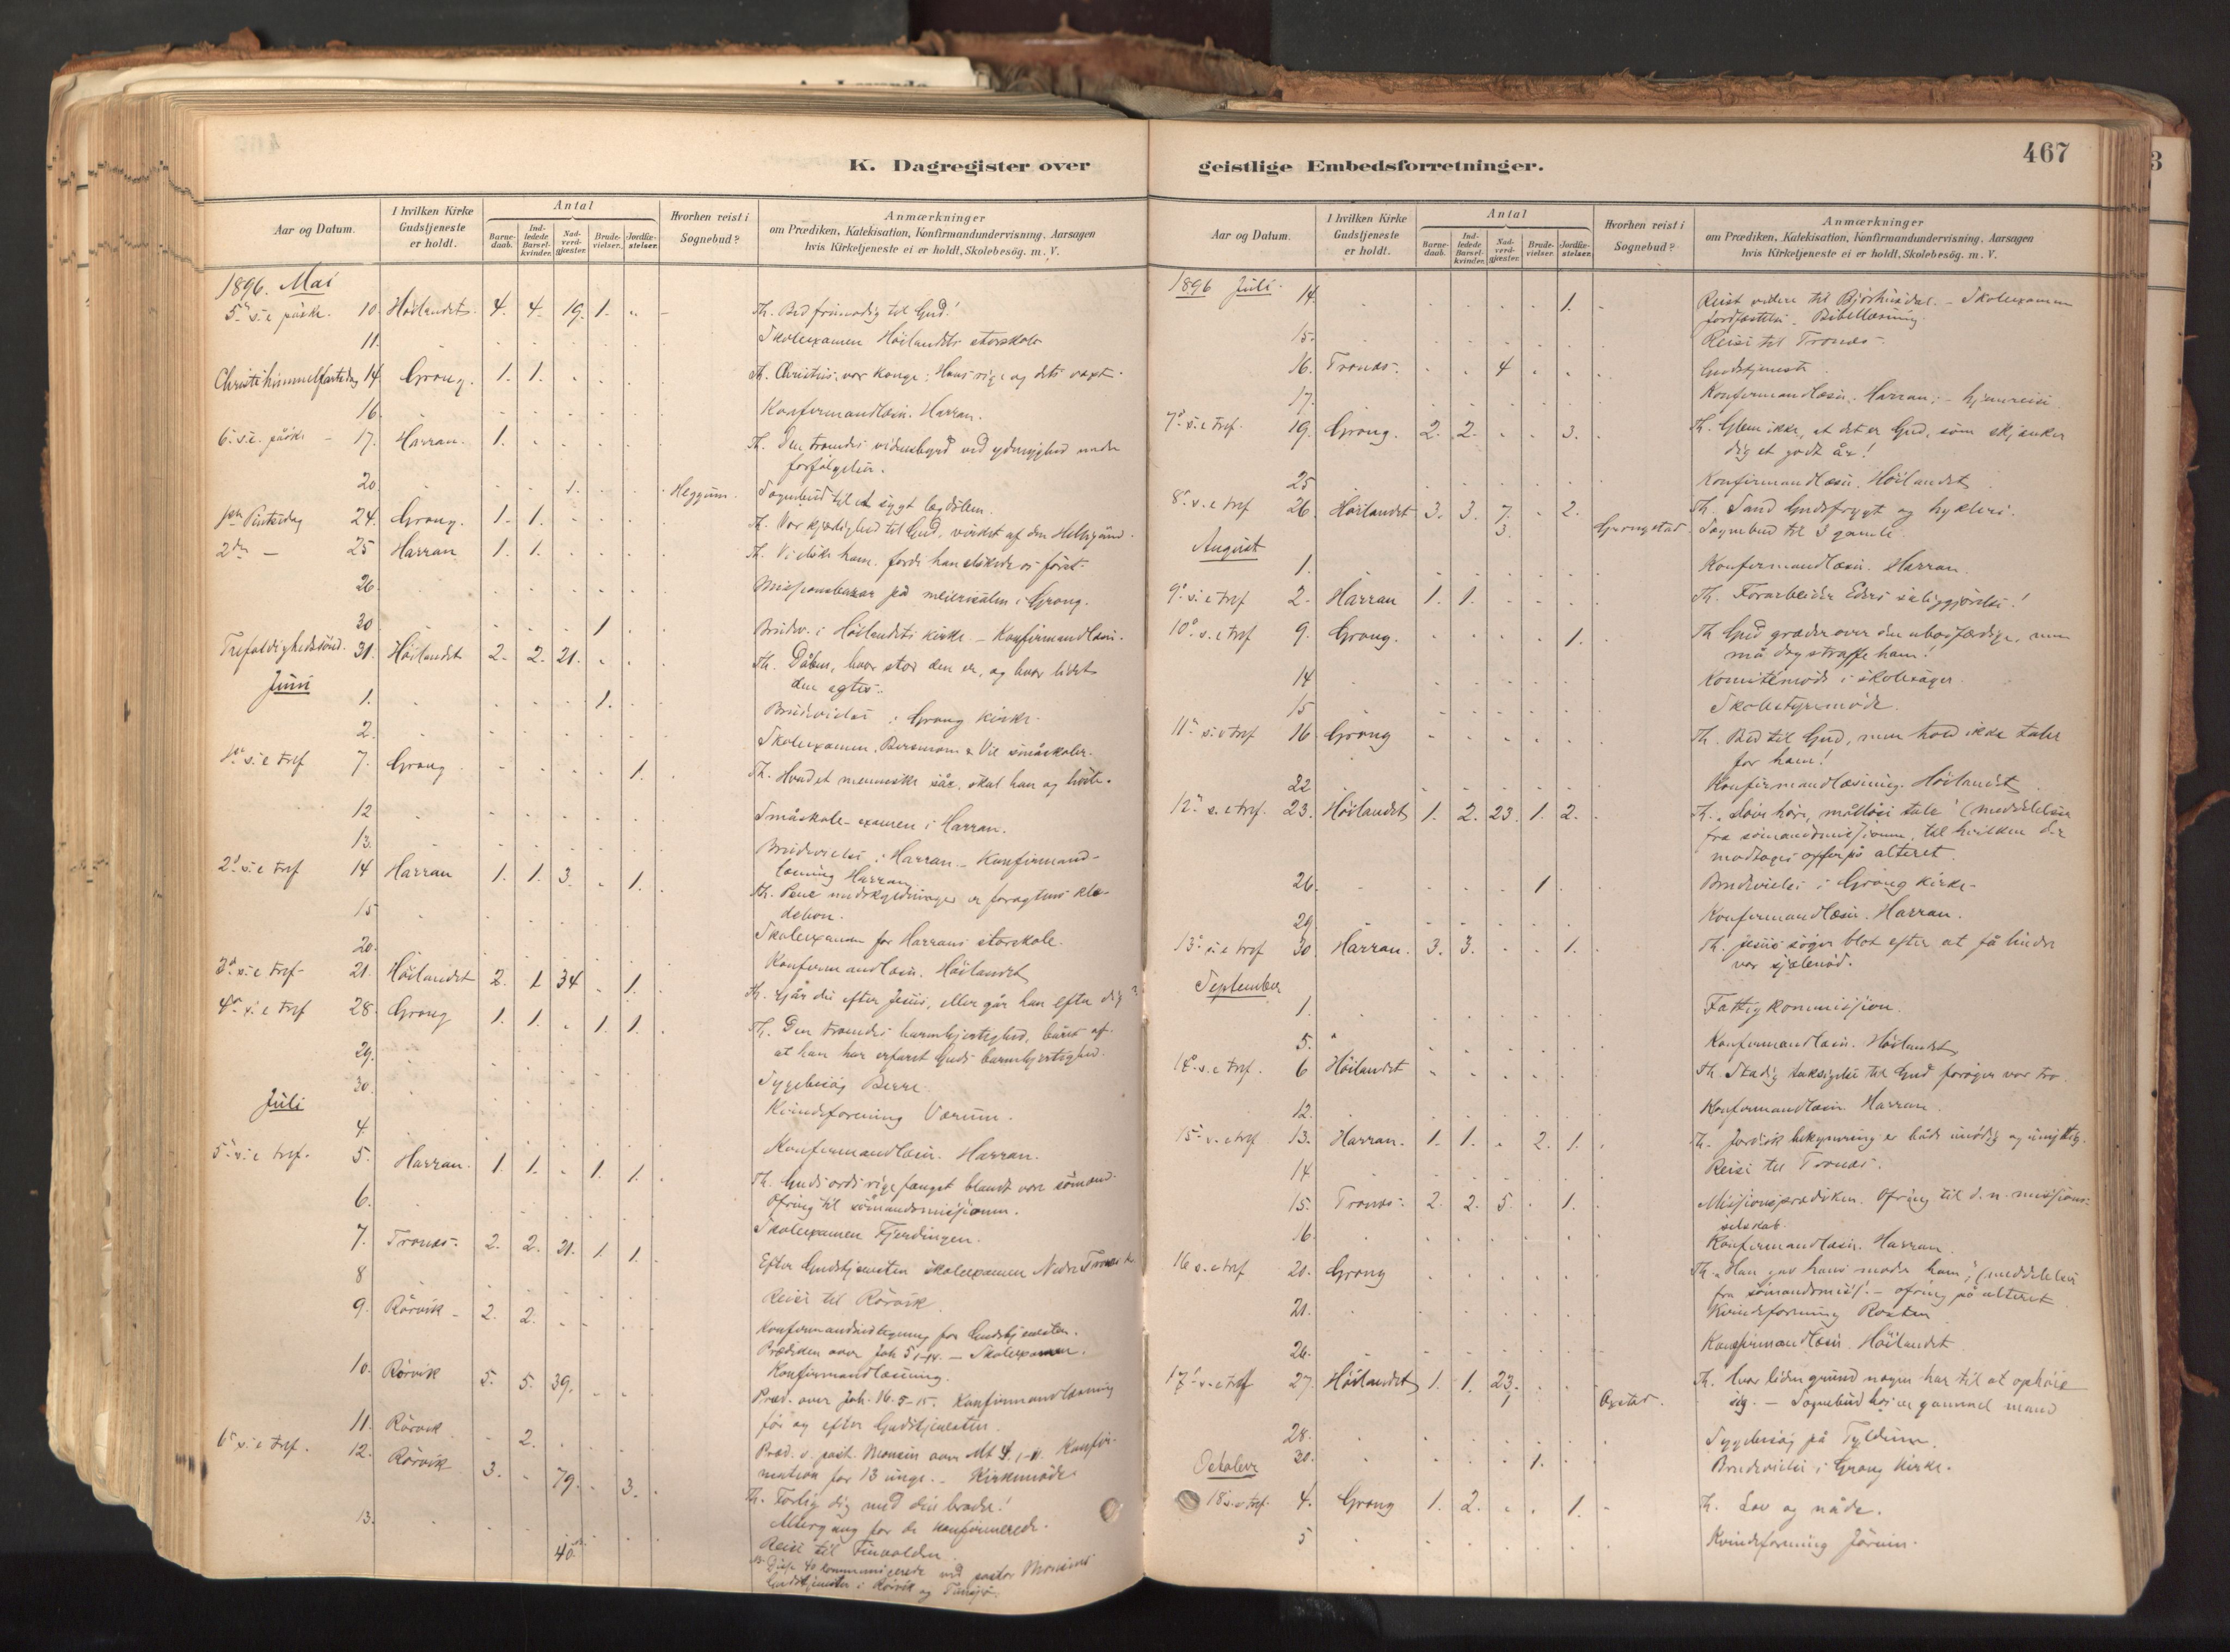 K. Dagregister over
Aar og Datum.
I hvilken Kirke Gudstjeneste er holdt.
Antal
Barne-daab.
Ind-ledede Barsel-kvinder.
Nad-verd-gjester.
Brude-vielser.
Jordfæ-stelser.
Hvorhen reist i Sognebud?
Anmærkninger
om Prædiken, Katekisation, Konfirmandundervisning, Aarsagen
hvis Kirketjeneste ei er holdt, Skolebesøg. m. V.
1896. Mai
5te s. e. påske. 10. Höilandet. 4. 4. 19. 1. Th. Bed frimodig til Gud!
11. Skoleexamen Höilandets storskole
Christi himmelfartsdag 14. Grong. 1. 1. Th. Christus, vor konge: Hans rige og dets vext.
16. Konfirmandlæsn. Harran.
6. s. e. påske 17. Harran. 1. Th. Den troendes vidnesbyrd ved ydmyghed under
forfølgelser.
20. 1. Heggum. Sognebud til et sygt lægdslem.
1ste Pintsedag 24. Grong. 1. 1. Th. Vor kjærlighed til Gud, virket af den Helligånd.
2den 25 Harran 1. 1. Th. Vi elske ham, fordi han elskede os først.
26. Missionsbasar på meierisalen i Grong.
30 1 Brudev. i Höilandets kirke. - Konfirmandlæsn.
Trefoldighedssönd. 31. Höilandet 2. 2. 21. Th. Dåben, hvor stor den er, og hvor lidet
den agtes.
Juni
1. 1. Brudevielse i Grong kirke.
2. Skoleexamen. Bersmom & Vie småskoler.
1ste s. e. tref 7. Grong 1. Th. Hvad et menneske sår, skal han og höste.
12 Småskole-examen i Harran.
13. Brudevielse i Harran. - Konfirmand-
læsning Harran
2d s. e. tref 14 Harran 1. 1. 3. 1. Th. Pene undskyldninger er foragtens klæ-
debon.
15 Skoleexamen for Harrans storskole.
20. Konfirmandlæsn. Höilandet
3d s. e. tref. 21. Höilandet 2. 1 34 1. Th. Går du efter Jesus, eller går han efter dig?
4de s. e. tref 28. Grong 1. 1. 1. 1. Th. Den troendes barmhjertighed, båret af
at han har erfaret Guds barmhjertighed.
29. Sygebesøg Berre.
30. Kvindeforening Værum.
Juli
4. Konfirmandlæsn. Harran.
5te s. e. tref. 5. Harran. 1. 1. 1. 1. Th. Guds ords rige fangst blandt vore sömænd.
Ofring til sömandsmissionen.
6. Skoleexamen Fjerdingen.
7. Tronæs. 2. 2. 21. 1. 1. Efter Gudstjenesten skoleexamen Nedre Tronæs kr.
8 Reise til Rörvik.
9. Rörvik 2. 2. Konfirmandindtegning før Gudstjenesten.
Prædiken over Joh 5 1-14. - Skoleexamen.
Konfirmandlæsning.
10. Rörvik 5. 5. 39. Præd. over Joh. 16. 5-15. Konfirmandlæsning
før og efter Gudstjenesten.
11. Rörvik 2. Præd. v. past. Monsen over Mt 4. 1-11. Konfir-
mation for 13 unge. - Kirkemöde
6te s. e. tref. 12. Rörvik 3. 79. 3. Th. Forlig dig med din broder!
Altergang for de konfirmerede.
13. Reise til Finvolden.
40 Disse 40 kommunicerede ved pastor Monsens
Gudstjenester i Rörvik og Tunsjø.
geistlige Embedsforretninger.
467
Aar og Datum.
I hvilken Kirke Gudstjeneste er holdt.
Antal
Barne-daab.
Ind-ledede Barsel-kvinder.
Nad-verd-gjester.
Brude-vielser.
Jordfæ-stelser.
Hvorhen reist i Sognebud?
Anmærkninger
om Prædiken, Katekisation, Konfirmandundervisning, Aarsagen
hvis Kirketjeneste ei er holdt, Skolebesøg. m. V.
1896 Juli. 14. 1. Reist videre til Bjørhusdal. - Skoleexamen
Jordfæstelse. Bibellæsning.
15. Reise til Tronæs.
16. Tronæs. 4 Gudstjeneste
17. Konfirmandlæsn. Harran; - hjemreise
7de s. e. tref. 19. Grong. 2. 2. 3. Th. Glem ikke, at det er Gud, som skjænker
dig et godt år!
25 Konfirmandlæsn. Höilandet
8de s. e. tref 26. Höilandet 3. 3. 7. 2. Th. Sand Gudsfrygt og hykleri.
3. Grongstad. Sognebud til 3 gamle.
August
1. Konfirmandlæsn. Harran.
9de s. e. tref 2. Harran 1. 1. Th. Forarbeider Eders saliggjørelse!
10de s. e. tref 9. Grong. 1. Th Gud græder over den ubodfærdige, men
må dog straffe ham!
14 Komitemöde i skolesager.
15 Skolestyremöde.
11te s. e. tref 16 Grong Th. Bed til Gud, men hold ikke taler
for ham!
22 Konfirmandlæsning. Höilandet
12te s. e. tref. 23. Höilandet 1. 2. 23. 1. 2. Th. "Döve höre, målløse tale" (meddelelser
fra sömandsmissionen, til hvilken der
modtages offer på alteret.
26. 1 Brudevielse i Grong kirke.
29. Konfirmandlæsn. Harran.
13de s. e. tref 30. Harran. 3. 3. 1. Th. Jesus söger blot efter at få lindre
vor sjælenöd.
September
1. Fattigkommission.
5. Konfirmandlæsn. Höilandet
14de s. e. tref. 6 Höilandet Th. Stadig taksigelse til Gud foröger vor tro.
12. Konfirmandlæsn. Harran.
15de s. e. tref 13. Harran. 1. 1. 2. 1. Th. Jordisk bekymring er både unödig og unyttig.
14 Reise til Tronæs.
15. Tronæs. 2. 2. 5. 1. Missionsprædiken. Ofring til d. n. missions-
selskab.
16. Konfirmandlæsn. Harran.
16 s. e. tref 20. Grong Th. "Han gav hans moder ham"; (meddelelser
fra sömandsmiss.) - ofring på alteret
21. Kvindeforening Rosten
26. Konfirmandlæsn. Höilandet
17de s. e. tref 27. Höilandet 1. 1. 23. Th. hvor liden grund nogen har til at ophöie
1 sig. - Sognebud hos en gammel mand
28. Sygebesøg på Tyldum.
30. 1. Brudevielse i Grong kirke.
October
18 s. e. tref. 4. Grong 1. 2. 1. Th. Lov og nåde.
5 Kvindeforening Jörum.